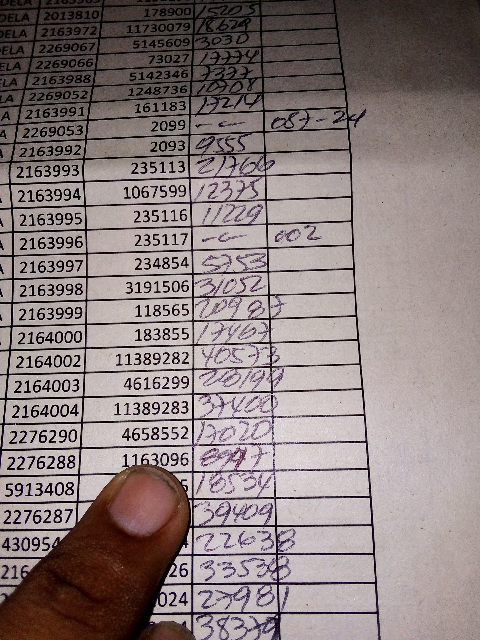 DELA 2013810 178900 15205
DELA 2163972 11730079 18629
DELA 2269067 5145609 3030
ELA 2269066 73027 17774
ELA 2163988 5142346 7377
LA 2269052 1248736 10708
LA 2163991 161183 17214
A 2269053 2099 -~- 087-24
A 2163992 2093 9555
2163993 235113 21766
A 2163994 1067599 12375
A 2163995 235116 11229
A 2163996 235117 -~- 002
A 2163997 234854 5753
2163998 3191506 31052
2163999 118565 20987
2164000 183855 17467
2164002 11389282 40573
2164003 4616299
2164004 11389283 37400
2276290 4658552 17020
2276288 1163096
5913408 18534
2276287 39409
430954 22638
216 26 33538
024 27981
38379